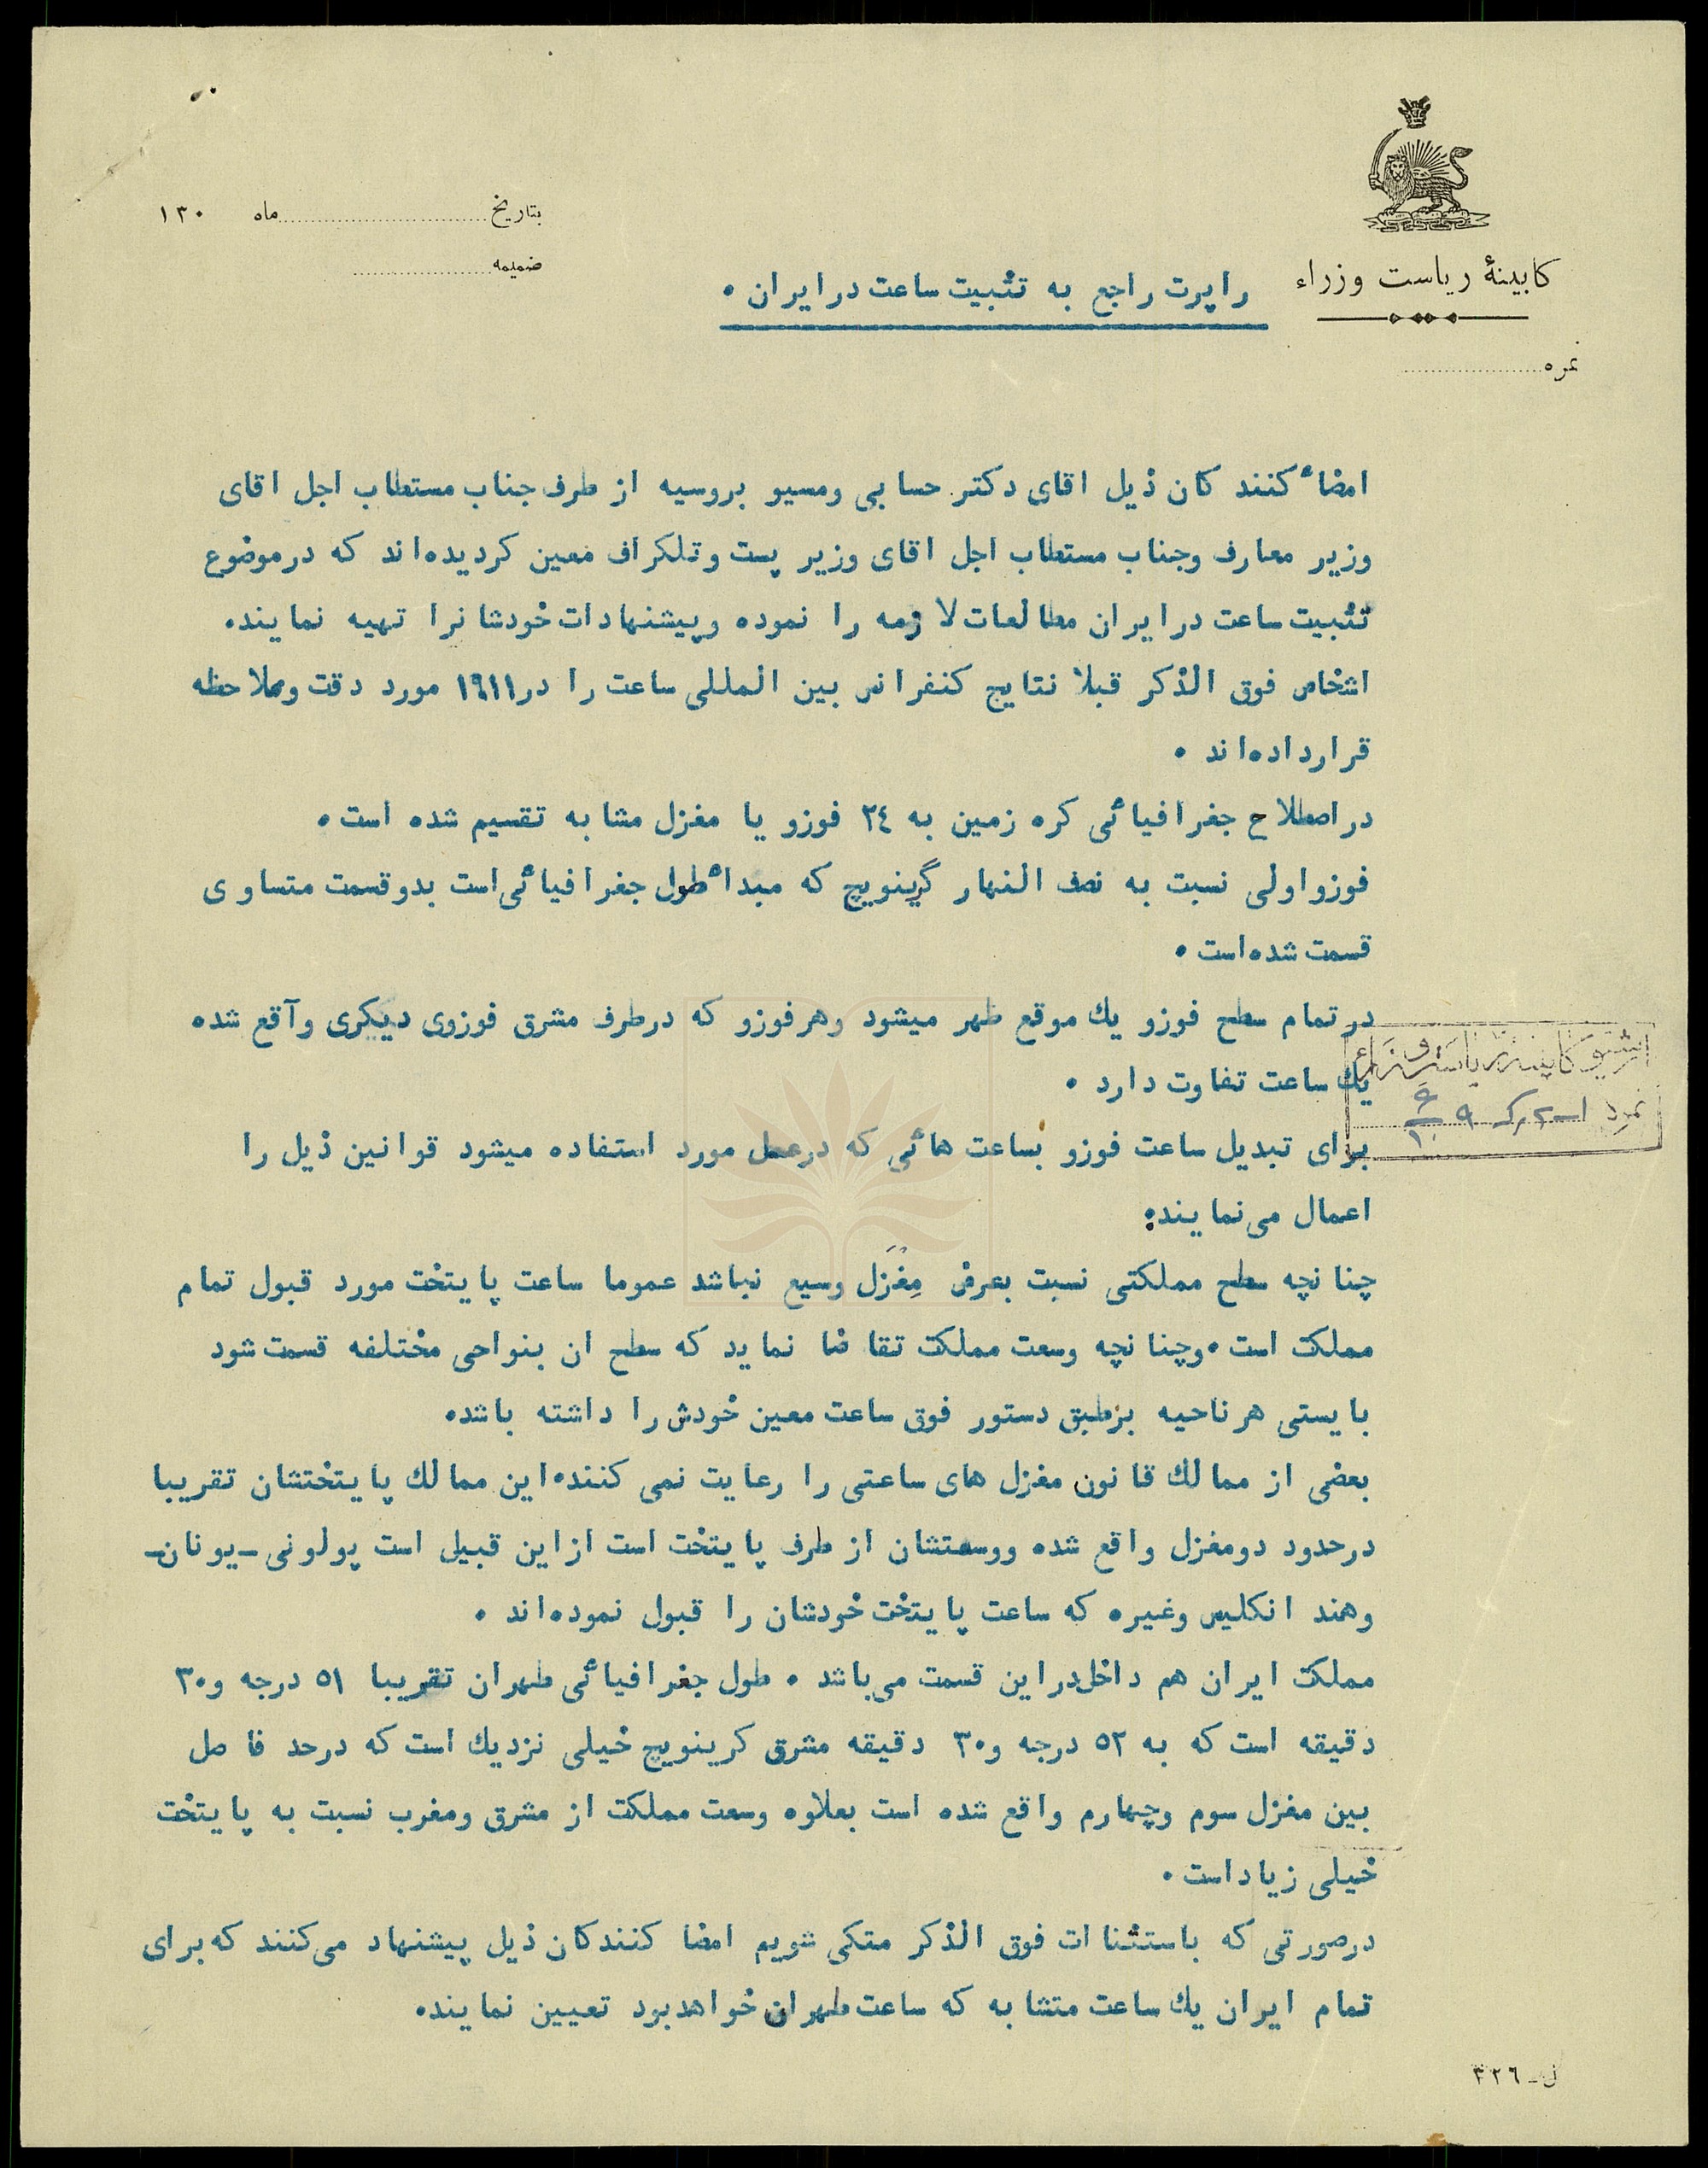 کابینهٔ ریاست وزراء
نمره
بتاریخ ماه ۱۳۰
ضمیمه
راپرت راجع به تثبیت ساعت در ایران .
امضاء کنند کان ذیل اقای دکتر حسابی ومسیو بروسیه از طرف جناب مستطاب اجل اقای
وزیر معارف وجناب مستطاب اجل اقای وزیر پست وتلکراف معین کردیده‌اند که درموضوع
تثبیت ساعت در ایران مطالعات لازمه را نموده وپیشنهادات خودشانرا تهیه نمایند.
اشخاص فوق الذکر قبلا نتایج کنفرانس بین المللی ساعت را در ۱۹۱۱ مورد دقت وملاحظه
قرارداده‌اند .
در اصطلاح جغرافیائی کره زمین به ۲٤ فوزو یا مغزل مشابه تقسیم شده است .
فوزواولی نسبت به نصف النهار گرینویچ که مبداء طول جغرافیائی است بدوقسمت متساوی
قسمت شده‌است .
در تمام سطح فوزو یك موقع ظهر میشود وهرفوزو که درطرف مشرق فوزوی دیکری وآقع شده
یك ساعت تفاوت دارد .
برای تبدیل ساعت فوزو بساعت هائی که درعمل مورد استفاده میشود قوانین ذیل را
اعمال می‌نمایند:
چنانچه سطح مملکتی نسبت بعرض مِغْزَل وسیع نباشد عموما ساعت پایتخت مورد قبول تمام
مملکت است . وچنانچه وسعت مملکت تقاضا نماید که سطح ان بنواحی مختلفه قسمت شود
بایستی هر ناحیه برطبق دستور فوق ساعت معین خودش را داشته باشد.
بعضی از ممالك قانون مغزل های ساعتی را رعایت نمی کنند. این ممالك پایتختشان تقریبا
درحدود دومغزل واقع شده ووسعتشان از طرف پایتخت است ازاین قبیل است پولونی ـ یونان ـ
وهند انکلیس وغیره که ساعت پایتخت خودشان را قبول نموده‌اند .
مملکت ایران هم داخل‌دراین قسمت می‌باشد . طول جغرافیائی طهران تقریبا ٥۱ درجه و۳۰
دقیقه است که به ٥۲ درجه و۳۰ دقیقه مشرق کرینویچ خیلی نزدیك است که درحد فاصل
بین مغزل سوم وچهارم واقع شده است بعلاوه وسعت مملکت از مشرق ومغرب نسبت به پایتخت
خیلی زیاداست .
درصورتی که باستثناات فوق الذکر متکی شویم امضا کنندکان ذیل پیشنهاد می‌کنند که برای
تمام ایران یك ساعت متشابه که ساعت طهران خواهدبود تعیین نمایند.
ل ـ ۳۲٦